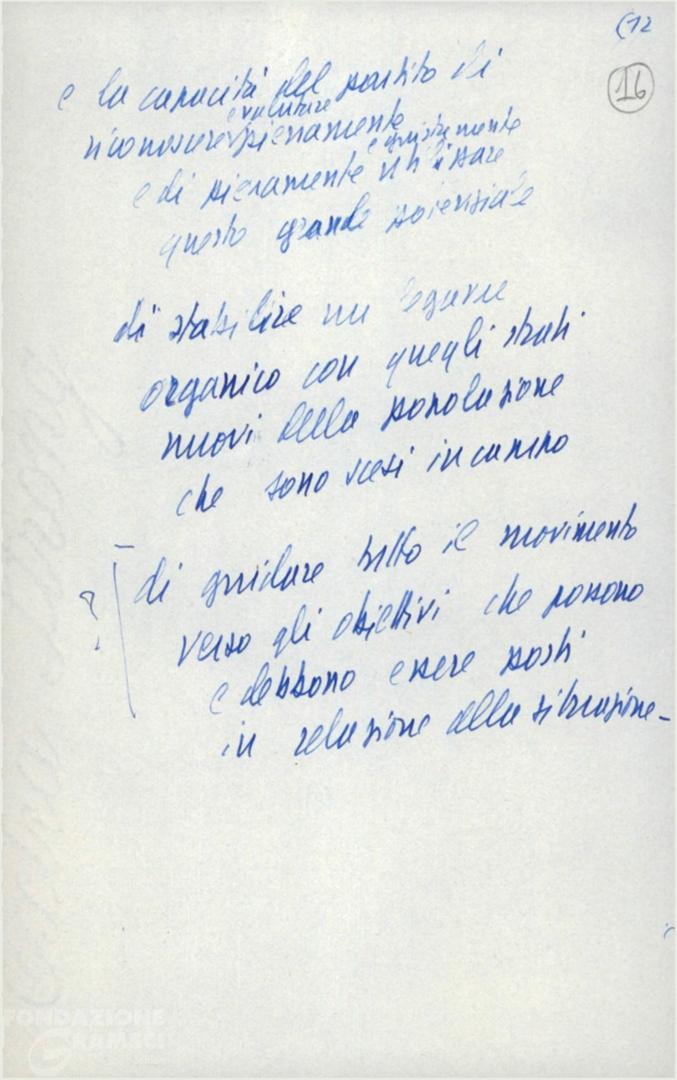 (12
16
e la capacità del partito di
e valutare
riconoscere pienamente
e giustamente
e di pienamente utilizzare
questo grande potenziale
di stabilire un legame
organico con quegli strati
nuovi della popolazione
che sono scesi in campo
? di guidare tutto il movimento
verso gli obiettivi che possono
e debbono essere posti
in relazione alla situazione -
FONDAZIONE
GRAMSCI